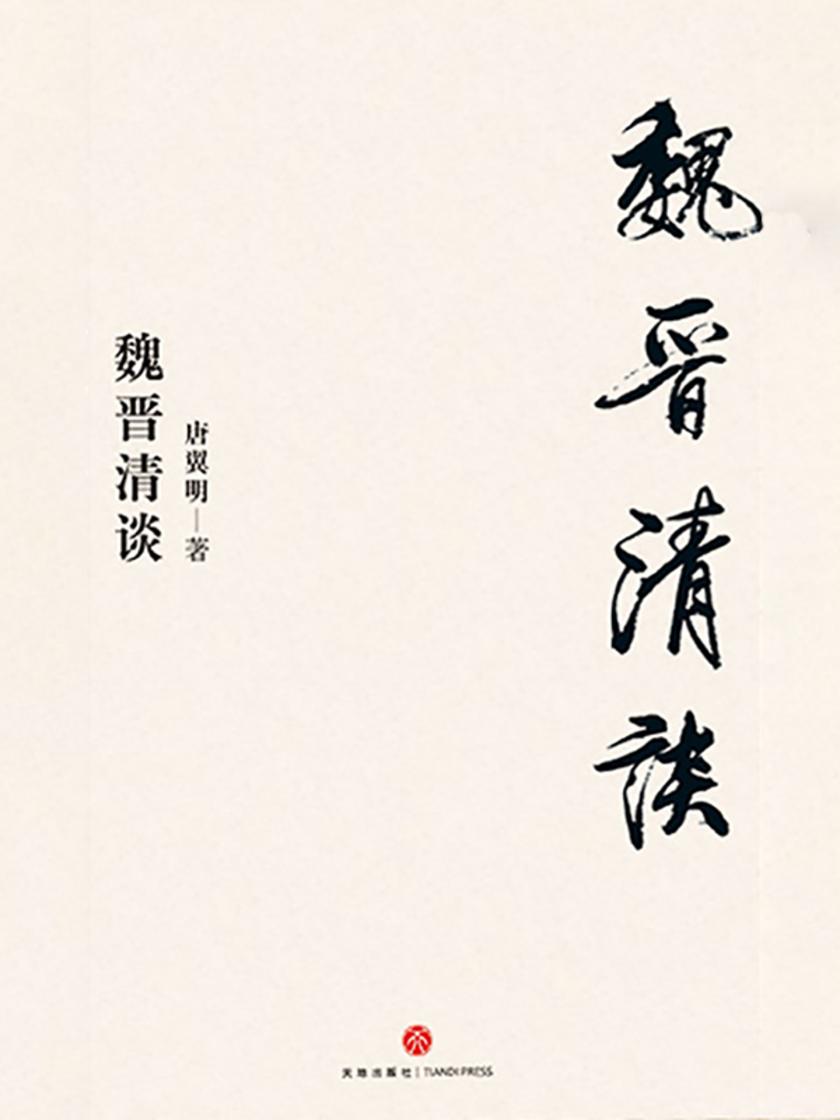 魏晋清談
唐翼明—著
魏晋清谈
天地出版社 | TIANDI PRESS